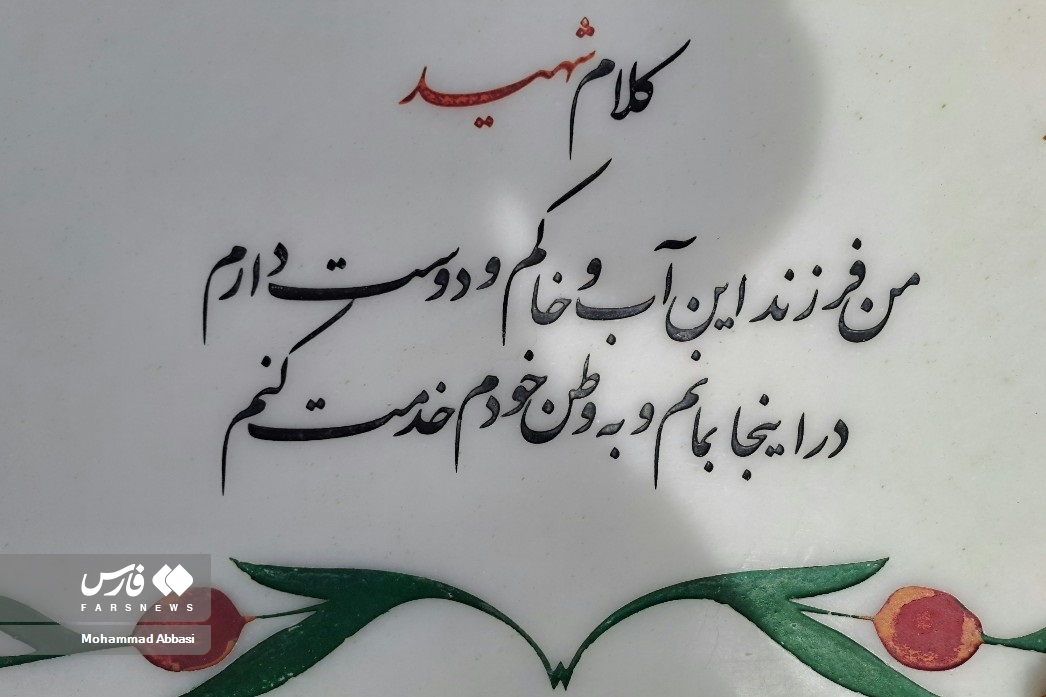 کلام شهید
من فرزند این آب و خاکم و دوست دارم
در اینجا بمانم و به وطن خودم خدمت کنم
فارس
FARSNEWS
Mohammad Abbasi